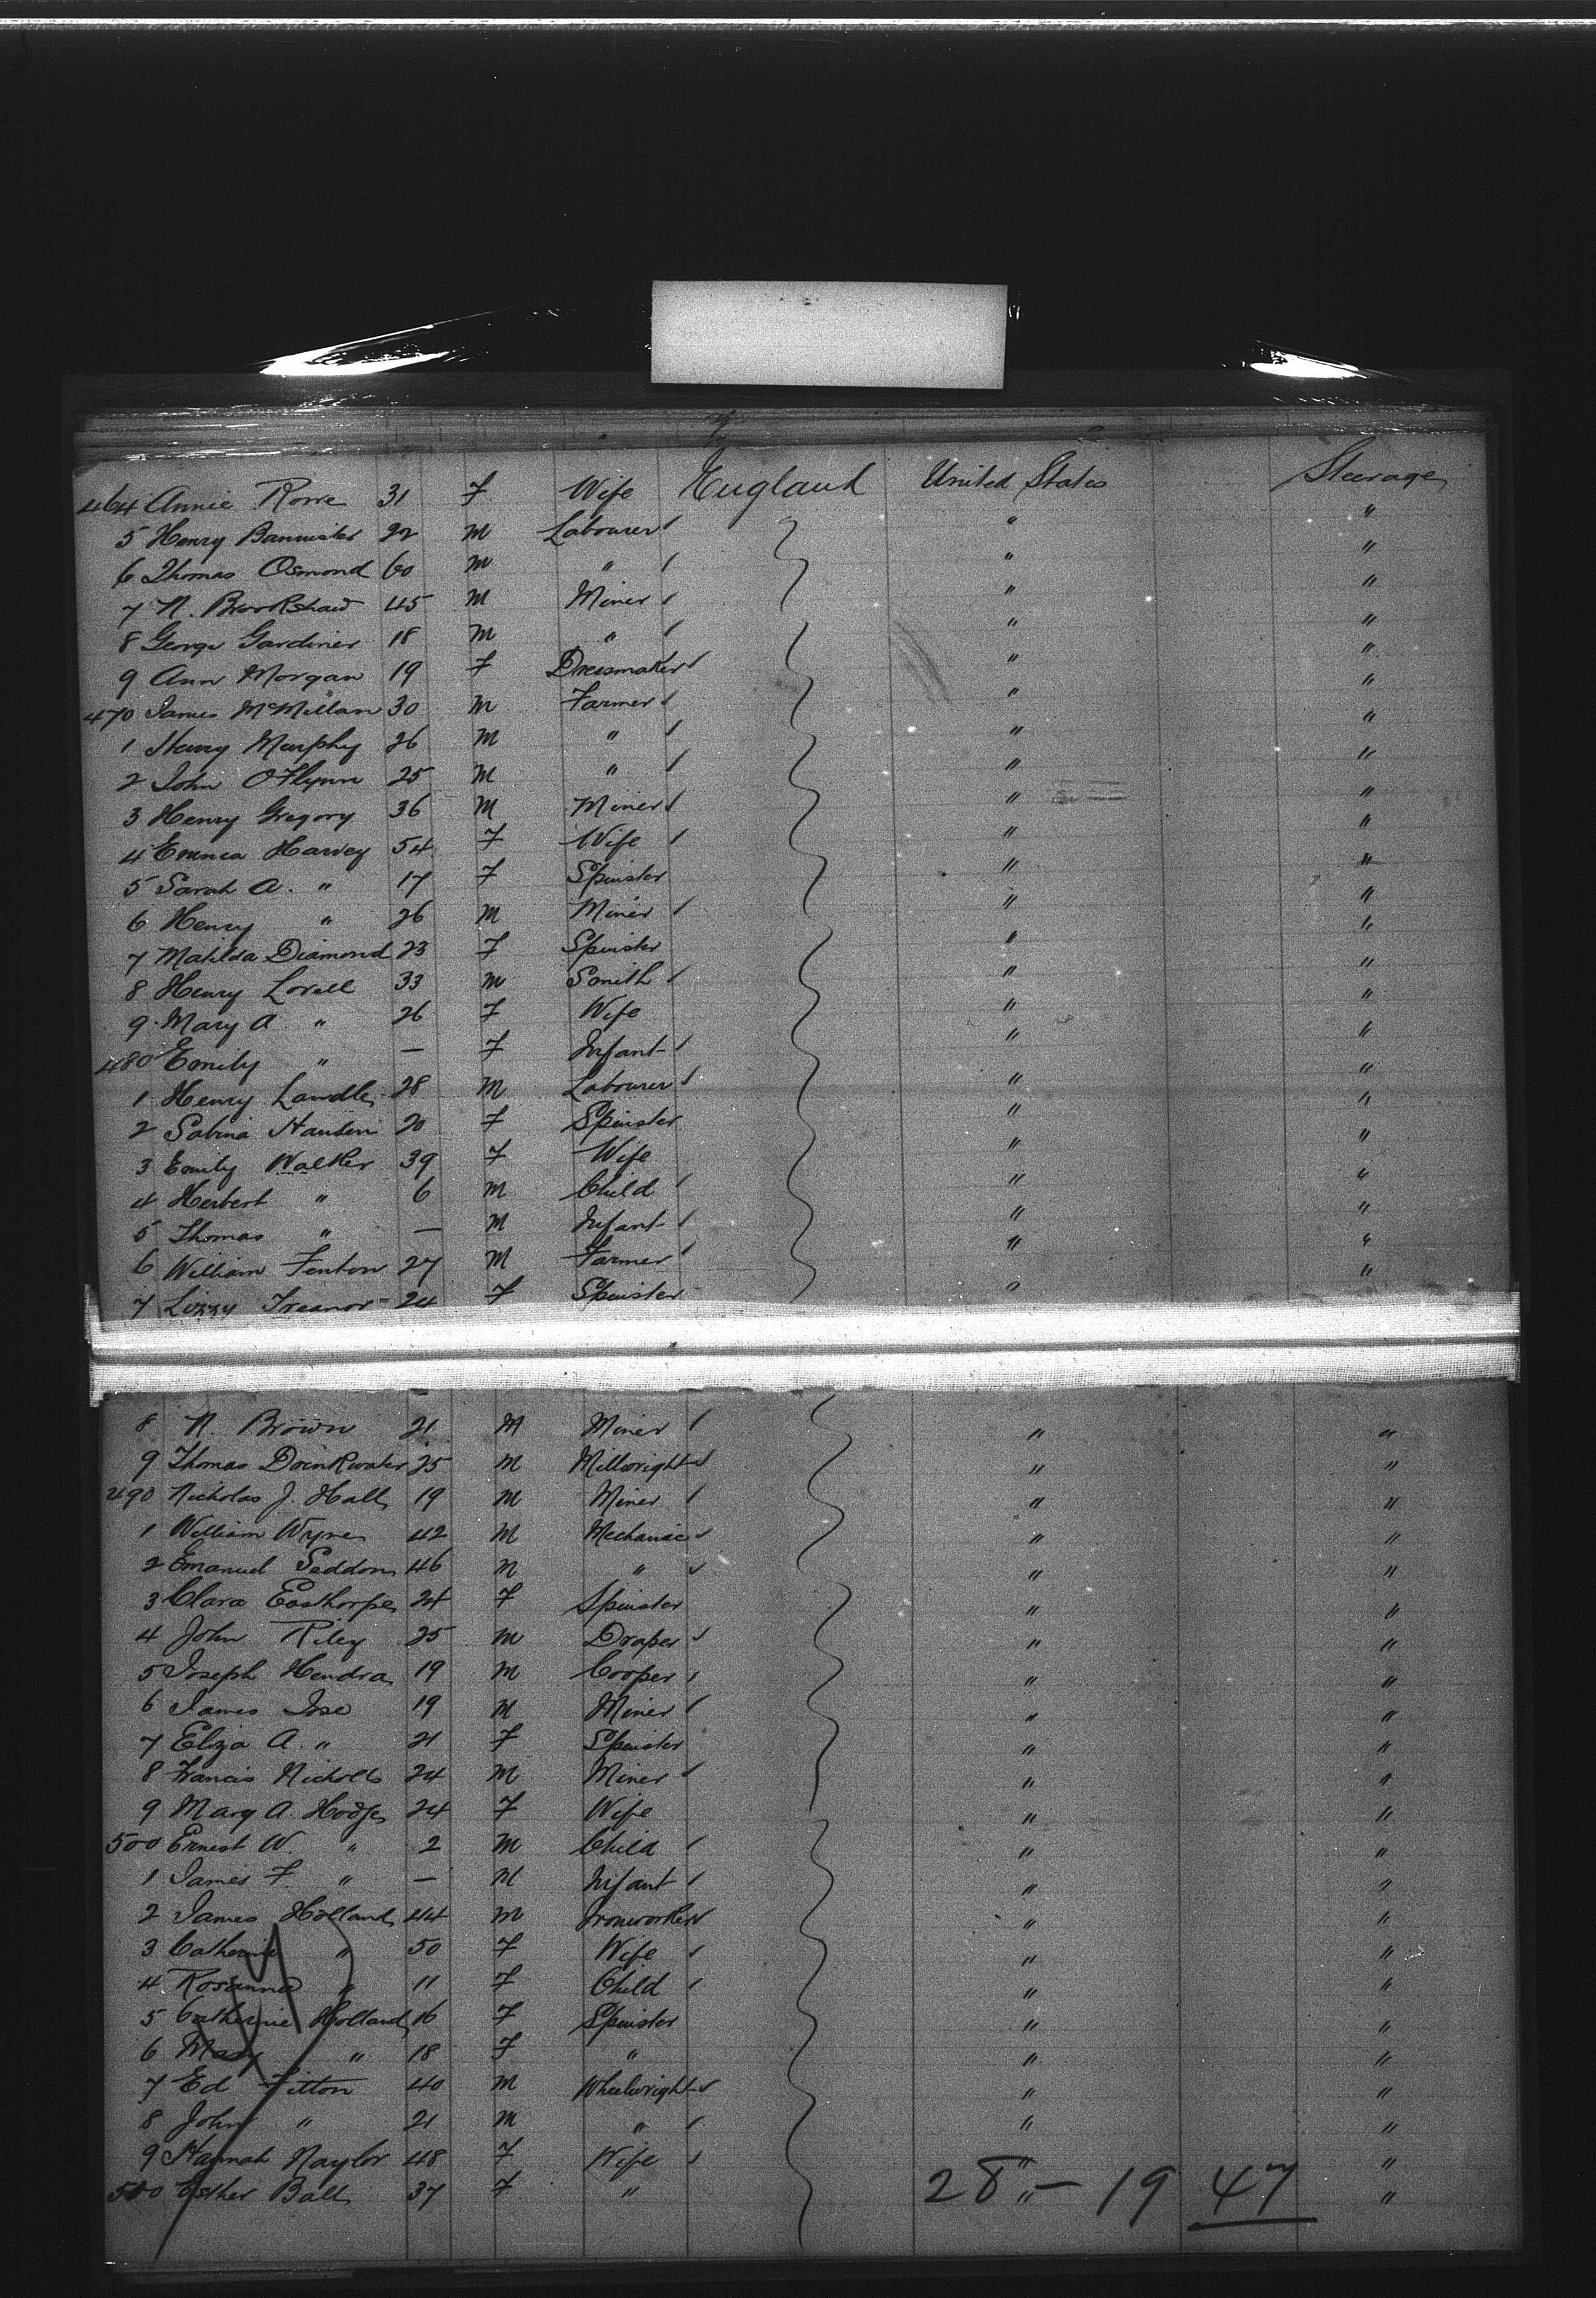 464 Annie Rowe 31 F Wife England United States Steerage
5 Henry Bannister 22 M Labourer " "
6 Thomas Osmond 60 M " " "
7 N. Brookshaw 45 M Miner " "
8 George Gardiner 18 M " " "
9 Ann Morgan 19 F Dressmaker " "
470 James McMillan 30 M Farmer " "
1 Henry Murphy 26 M " " "
2 John O'Flynn 25 M " " "
3 Henry Gregory 36 M Miner " "
4 Emma Harvey 54 F Wife " "
5 Sarah A. " 17 F Spinster " "
6 Henry " 26 M Miner " "
7 Matilda Diamond 23 F Spinster " "
8 Henry Lovell 33 M Smith " "
9 Mary A. " 26 F Wife " "
480 Emily " — F Infant " "
1 Henry Landle 28 M Labourer " "
2 Sabina Hansen 20 F Spinster " "
3 Emily Walker 39 F Wife " "
4 Herbert " 6 M Child " "
5 Thomas " — M Infant " "
6 William Fenton 27 M Farmer " "
7 Lizzy Treanor 24 F Spinster " "
8 N. Brown 21 M Miner " "
9 Thomas Drinkwater 25 M Millwright " "
490 Nicholas J. Hall 19 M Miner " "
1 William Wynne 42 M Mechanic " "
2 Emanuel Seddon 46 M " " "
3 Clara Easthorpe 24 F Spinster " "
4 John Riley 25 M Draper " "
5 Joseph Hendra 19 M Cooper " "
6 James Jose 19 M Miner " "
7 Eliza A. " 21 F Spinster " "
8 Francis Nicholls 24 M Miner " "
9 Mary A. Hodge 24 F Wife " "
500 Ernest W. " 2 M Child " "
1 James F. " — M Infant " "
2 James Holland 44 M Ironworker " "
3 Catherine " 50 F Wife " "
4 Rosanna " 11 F Child " "
5 Catherine Holland 16 F Spinster " "
6 Mary " 18 F " " "
7 Ed Fitton 40 M Wheelwright " "
8 John " 21 M " " "
9 Hannah Naylor 48 F Wife " "
510 Esther Ball 37 F " " "
28 — 19 47